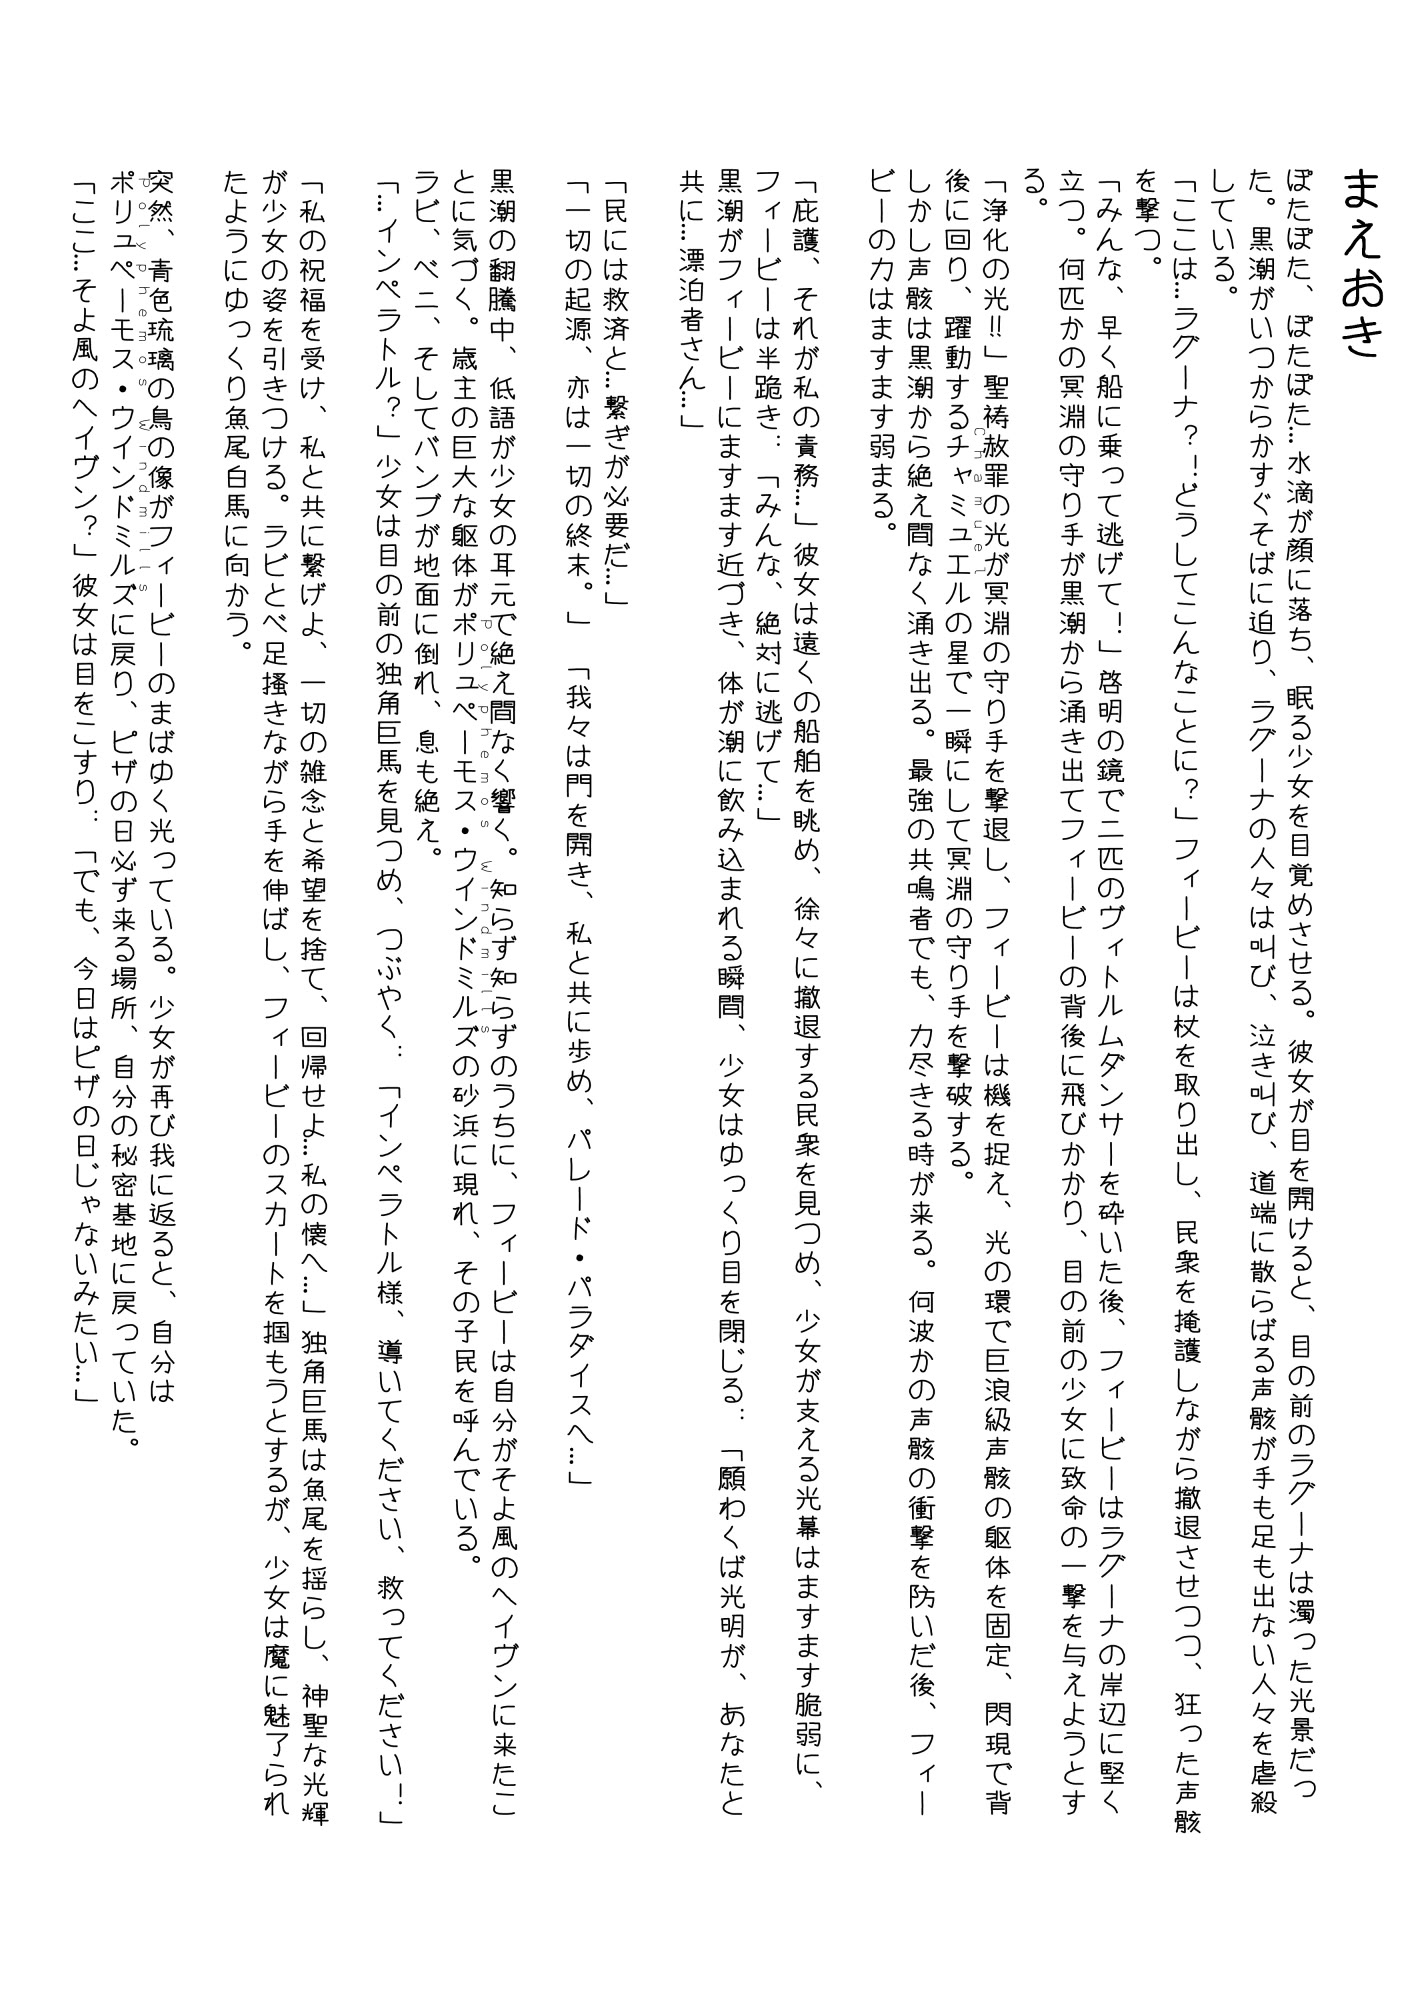 まえおき
ぽたぽた、ぽたぽた…水滴が顔に落ち、眠る少女を目覚めさせる。彼女が目を開けると、目の前のラグーナは濁った光景だっ
た。黒潮がいつからかすぐそばに迫り、ラグーナの人々は叫び、泣き叫び、道端に散らばる声骸が手も足も出ない人々を虐殺
している。
「ここは…ラグーナ？！どうしてこんなことに？」フィービーは杖を取り出し、民衆を掩護しながら撤退させつつ、狂った声骸
を撃つ。
「みんな、早く船に乗って逃げて！」啓明の鏡で二匹のヴィトルムダンサーを砕いた後、フィービーはラグーナの岸辺に堅く
立つ。何匹かの冥淵の守り手が黒潮から涌き出てフィービーの背後に飛びかかり、目の前の少女に致命の一撃を与えようとす
る。
「浄化の光‼」聖祷赦罪の光が冥淵の守り手を撃退し、フィービーは機を捉え、光の環で巨浪級声骸の躯体を固定、閃現で背
Chamuel
後に回り、躍動するチャミュエルの星で一瞬にして冥淵の守り手を撃破する。
しかし声骸は黒潮から絶え間なく涌き出る。最強の共鳴者でも、力尽きる時が来る。何波かの声骸の衝撃を防いだ後、フィー
ビーの力はますます弱まる。
「庇護、それが私の責務…」彼女は遠くの船舶を眺め、徐々に撤退する民衆を見つめ、少女が支える光幕はますます脆弱に、
フィービーは半跪き：「みんな、絶対に逃げて…」
黒潮がフィービーにますます近づき、体が潮に飲み込まれる瞬間、少女はゆっくり目を閉じる：「願わくば光明が、あなたと
共に…漂泊者さん…」
「民には救済と…繋ぎが必要だ…」
「一切の起源、亦は一切の終末。」「我々は門を開き、私と共に歩め、パレード・パラダイスへ…」
黒潮の翻騰中、低語が少女の耳元で絶え間なく響く。知らず知らずのうちに、フィービーは自分がそよ風のヘイヴンに来たこ
Polyphemos Windmills
とに気づく。歳主の巨大な躯体がポリュペーモス・ウインドミルズの砂浜に現れ、その子民を呼んでいる。
ラビ、ベニ、そしてバンブが地面に倒れ、息も絶え。
「…インペラトル？」少女は目の前の独角巨馬を見つめ、つぶやく：「インペラトル様、導いてください、救ってください！」
「私の祝福を受け、私と共に繋げよ、一切の雑念と希望を捨て、回帰せよ…私の懐へ…」独角巨馬は魚尾を揺らし、神聖な光輝
が少女の姿を引きつける。ラビとベ足掻きながら手を伸ばし、フィービーのスカートを掴もうとするが、少女は魔に魅了られ
たようにゆっくり魚尾白馬に向かう。
突然、青色琉璃の鳥の像がフィービーのまばゆく光っている。少女が再び我に返ると、自分は
Polyphemos Windmills
ポリュペーモス・ウインドミルズに戻り、ピザの日必ず来る場所、自分の秘密基地に戻っていた。
「ここ…そよ風のヘイヴン？」彼女は目をこすり：「でも、今日はピザの日じゃないみたい…」